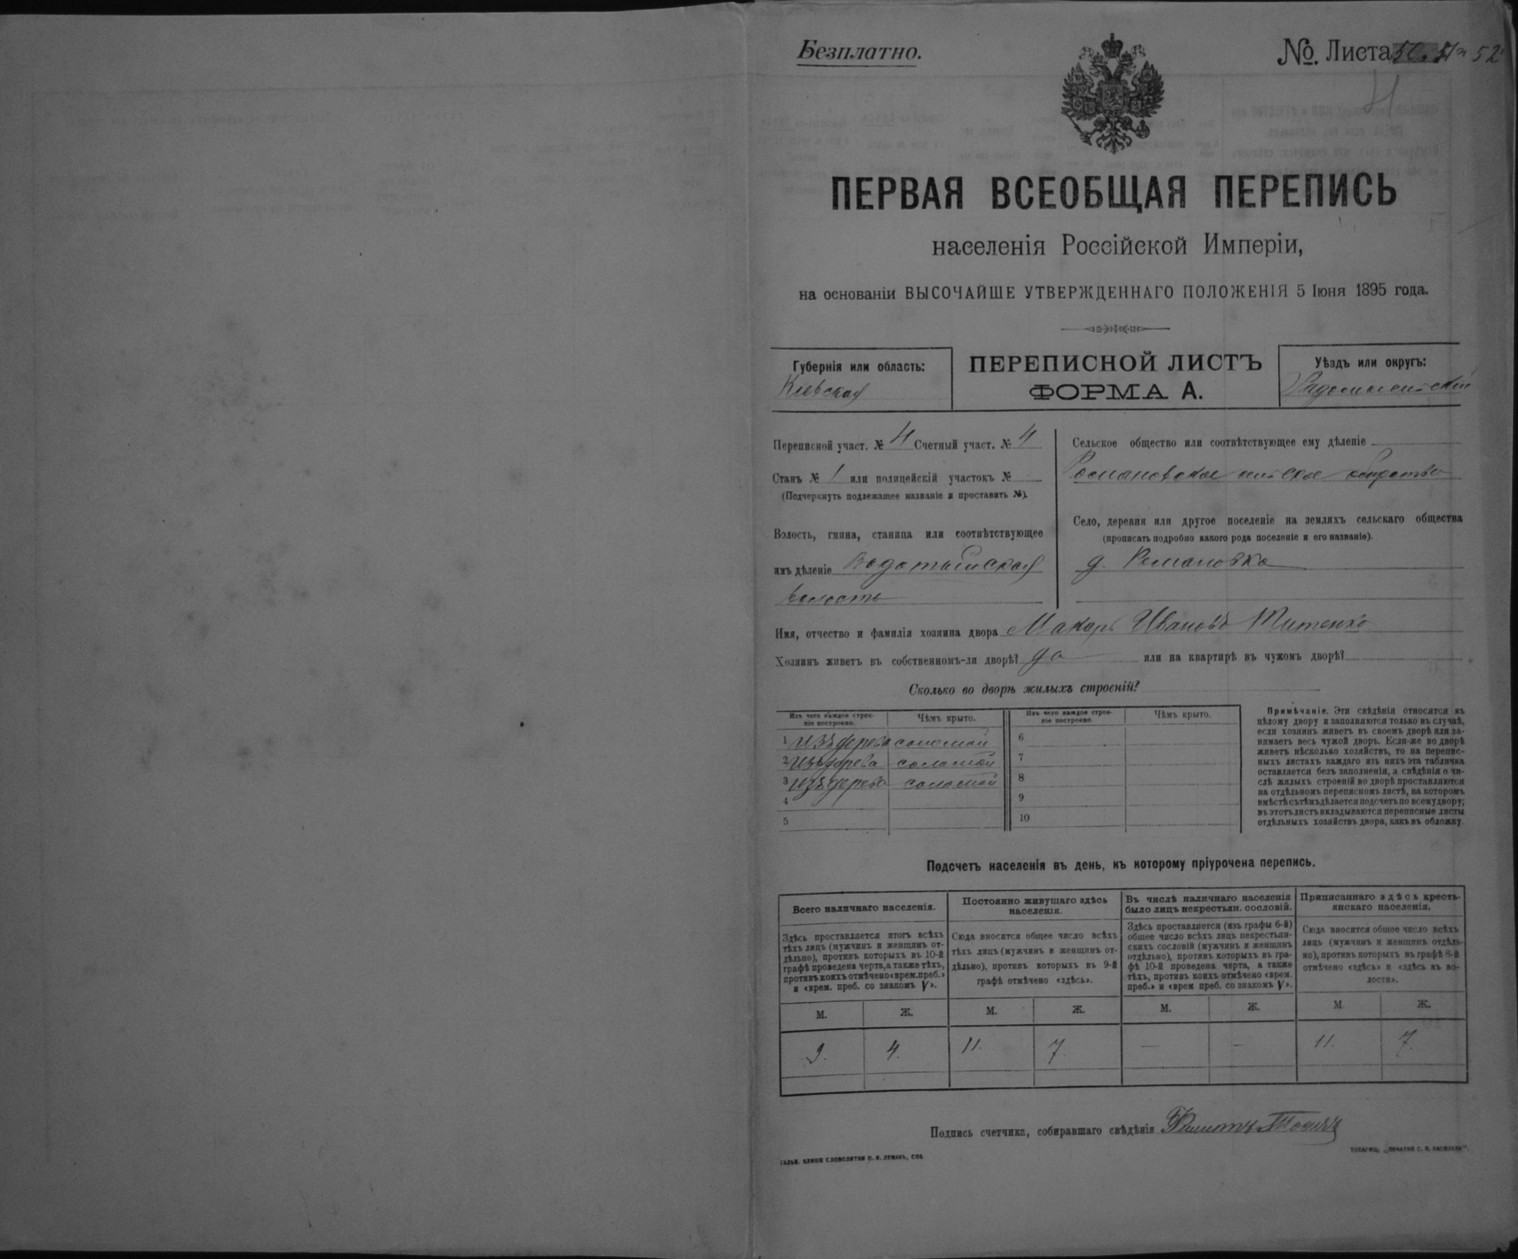 Безплатно.
№. Листа 50. 51 и 52
4
ПЕРВАЯ ВСЕОБЩАЯ ПЕРЕПИСЬ
населенія Россійской Имперіи,
на основаніи ВЫСОЧАЙШЕ УТВЕРЖДЕННАГО ПОЛОЖЕНІЯ 5 Іюня 1895 года.
Губернія или область:
Кіевская
ПЕРЕПИСНОЙ ЛИСТЪ
ФОРМА А.
Уѣздъ или округъ:
Радомысльскій
Переписной участ. № 4 Счетный участ. № 4
Станъ № 1 или полицейскій участокъ №
(Подчеркнуть подлежащее названіе и проставить №).
Волость, гмина, станица или соотвѣтствующее
имъ дѣленіе Водотыйская
волость
Сельское общество или соотвѣтствующее ему дѣленіе
Романовское сельское общество
Село, деревня или другое поселеніе на земляхъ сельскаго общества
(прописать подробно какого рода поселеніе и его названіе).
д. Романовка
Имя, отчество и фамилія хозяина двора Макаръ Ивановъ Титенко
Хозяинъ живетъ въ собственномъ-ли дворѣ? да или на квартирѣ въ чужомъ дворѣ?
Сколько во дворѣ жилыхъ строеній?
Изъ чего каждое строе-
ніе построено.
Чѣмъ крыто.
1 Изъ дерева соломой
2 Изъ дерева соломой
3 Изъ дерева соломой
4
5
Изъ чего каждое строе-
ніе построено.
Чѣмъ крыто.
6
7
8
9
10
Примѣчаніе. Эти свѣдѣнія относятся къ
цѣлому двору и заполняются только въ случаѣ,
если хозяинъ живетъ въ своемъ дворѣ или за-
нимаетъ весь чужой дворъ. Если-же во дворѣ
живетъ нѣсколько хозяйствъ, то на перепис-
ныхъ листахъ каждаго изъ нихъ эта табличка
оставляется безъ заполненія, а свѣдѣнія о чи-
слѣ жилыхъ строеній во дворѣ проставляются
на отдѣльномъ переписномъ листѣ, на которомъ
вмѣстѣ съ тѣмъ дѣлается подсчетъ по всему двору;
въ этотъ листъ вкладываются переписные листы
отдѣльныхъ хозяйствъ двора, какъ въ обложку.
Подсчетъ населенія въ день, къ которому пріурочена перепись.
Всего наличнаго населенія.
Здѣсь проставляется итогъ всѣхъ
тѣхъ лицъ (мужчинъ и женщинъ от-
дѣльно), противъ которыхъ въ 10-й
графѣ проведена черта, а также тѣхъ,
противъ коихъ отмѣчено «врем. преб.»
и «врем. преб. со знакомъ V».
Постоянно живущаго здѣсь
населенія.
Сюда вносится общее число всѣхъ
тѣхъ лицъ (мужчинъ и женщинъ от-
дѣльно), противъ которыхъ въ 9-й
графѣ отмѣчено «здѣсь».
Въ числѣ наличнаго населенія
было лицъ некрестьян. сословій.
Здѣсь проставляется (изъ графы 6-й)
общее число всѣхъ лицъ некрестьян-
скихъ сословій (мужчинъ и женщинъ
отдѣльно), противъ которыхъ въ гра-
фѣ 10-й проведена черта, а также
тѣхъ, противъ коихъ отмѣчено «врем.
преб.» и «врем преб. со знакомъ V».
Приписаннаго здѣсь кресть-
янскаго населенія.
Сюда вносится общее число всѣхъ
лицъ (мужчинъ и женщинъ отдѣль-
но), противъ которыхъ въ графѣ 8-й
отмѣчено «здѣсь» и «здѣсь въ во-
лости».
М. Ж. М. Ж. М. Ж. М. Ж.
9. 4. 11. 7 — — 11. 7.
Подпись счетчика, собиравшаго свѣдѣнія